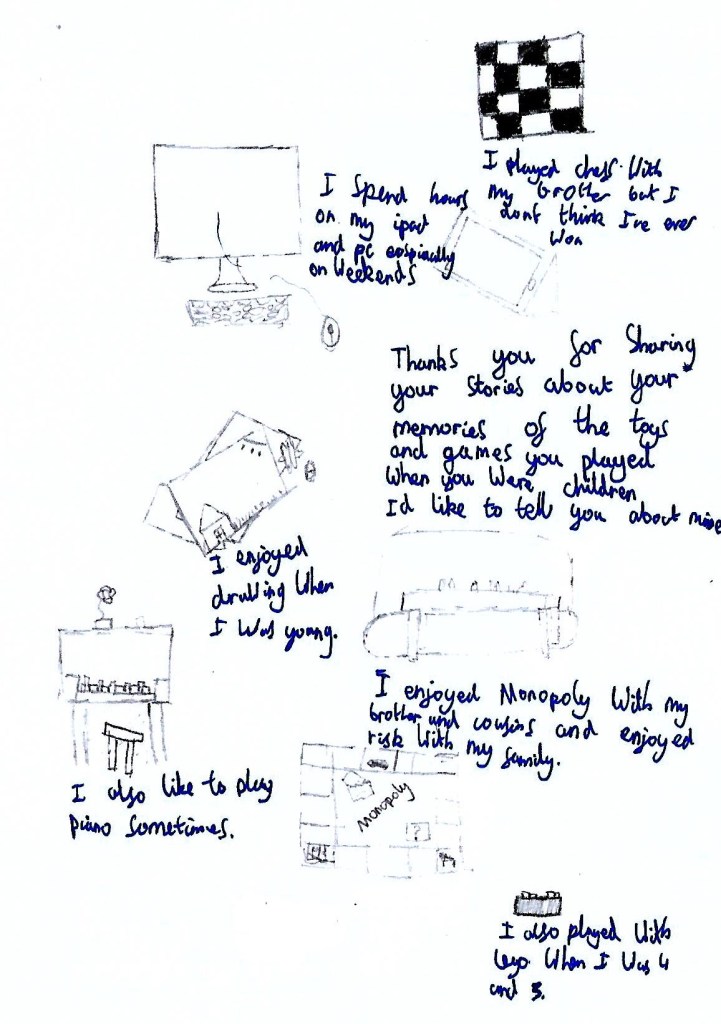 I played chess with
my brother but I
dont think I've ever
won
I spend hours
on my ipad
and pc eospically
on weekends
Thanks you for sharing
your stories about your
memories of the toys
and games you played
when you were children
I'd like to tell you about mine
I enjoyed
drawing when
I was young.
I enjoyed Monopoly with my
brother and cousins and enjoyed
risk with my family.
I also like to play
piano sometimes.
Monopoly
?
I also played with
lego when I was 4
and 3.